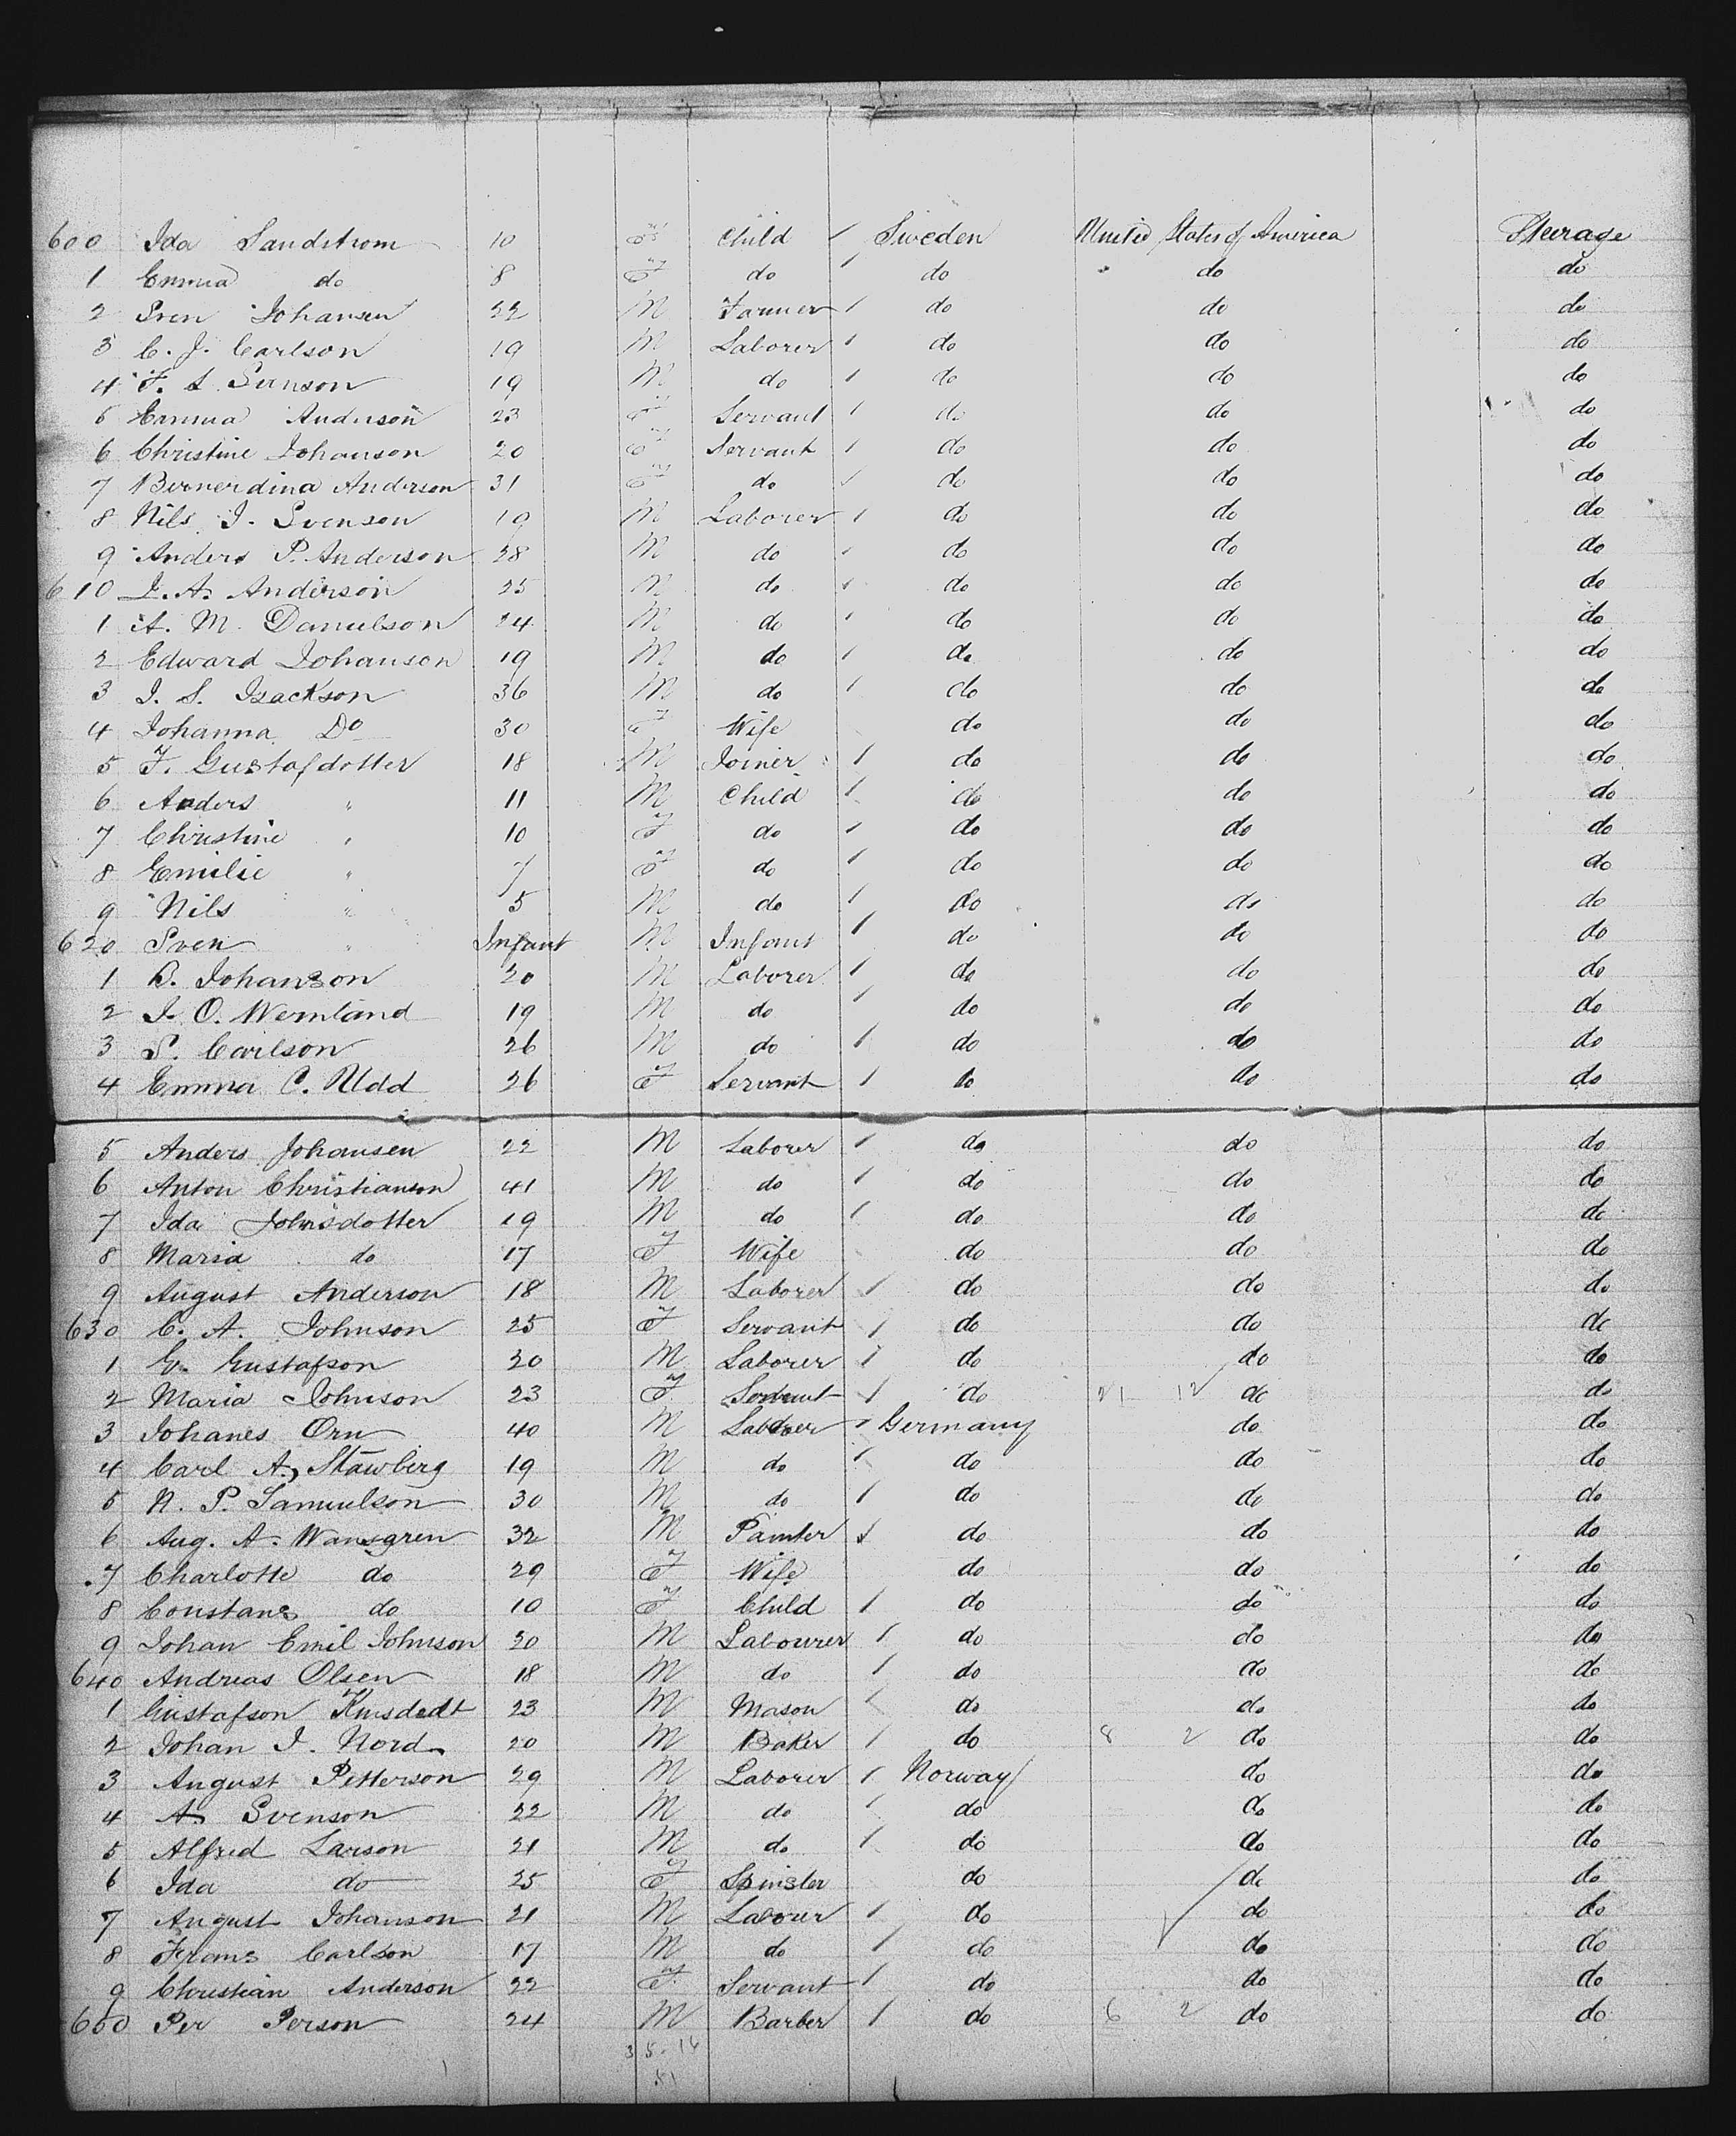 600 Ida Sandstrom 10 F Child / Sweden United States of America Steerage
1 Emma do 8 F do / do do do
2 Sven Johansen 22 M Farmer / do do do
3 C. J. Carlson 19 M Laborer / do do do
4 F. S. Sunson 19 M do / do do do
5 Emma Anderson 23 F Servant / do do do
6 Christine Johanson 20 F Servant / do do do
7 Bernerdina Anderson 31 F do / do do do
8 Nils J. Svenson 19 M Laborer / do do do
9 Anders P. Anderson 28 M do / do do do
610 J. A. Anderson 25 M do / do do do
1 A. M. Danielson 24 M do / do do do
2 Edward Johanson 19 M do / do do do
3 J. S. Isackson 36 M do / do do do
4 Johanna Do 30 F Wife do do do
5 F. Gustafdotter 18 M Joiner / do do do
6 Anders " 11 M Child / do do do
7 Christine " 10 F do / do do do
8 Emilie " 7 F do / do do do
9 Nils " 5 M do / do do do
620 Sven " Infant M Infant / do do do
1 B. Johanson 20 M Laborer / do do do
2 J. O. Wernland 19 M do / do do do
3 S. Carlson 26 M do / do do do
4 Emma C. Udd 26 F Servant / do do do
5 Anders Johansen 22 M Laborer / do do do
6 Anton Christianson 41 M do / do do do
7 Ida Johnsdotter 19 M do / do do do
8 Maria do 17 F Wife do do do
9 August Anderson 18 M Laborer / do do do
630 C. A. Johnson 25 F Servant / do do do
1 G. Gustafson 20 M Laborer / do do do
2 Maria Johnson 23 F Servant / do 21 12 do do
3 Johanes Orn 40 M Laborer / Germany do do
4 Carl A. Stawberg 19 M do / do do do
5 N. P. Samuelson 30 M do / do do do
6 Aug. A. Wansgren 32 M Painter / do do do
7 Charlotte do 29 F Wife do do do
8 Constans do 10 F Child / do do do
9 Johan Emil Johnson 20 M Labourer / do do do
640 Andreas Olsen 18 M do / do do do
1 Gustafson 23 M Mason / do do do
2 Johan J. Nord 20 M Baker / do 8 2 do do
3 August Petterson 29 M Laborer / Norway do do
4 A. Svenson 22 M do / do do do
5 Alfred Larson 21 M do / do do do
6 Ida do 25 F Spinster do do do
7 August Johanson 21 M Labour / do do do
8 Frans Carlson 17 M do / do do do
9 Christian Anderson 22 F Servant / do do do
650 Per Person 24 M Barber / do 6 2 do do
35 - 16
51